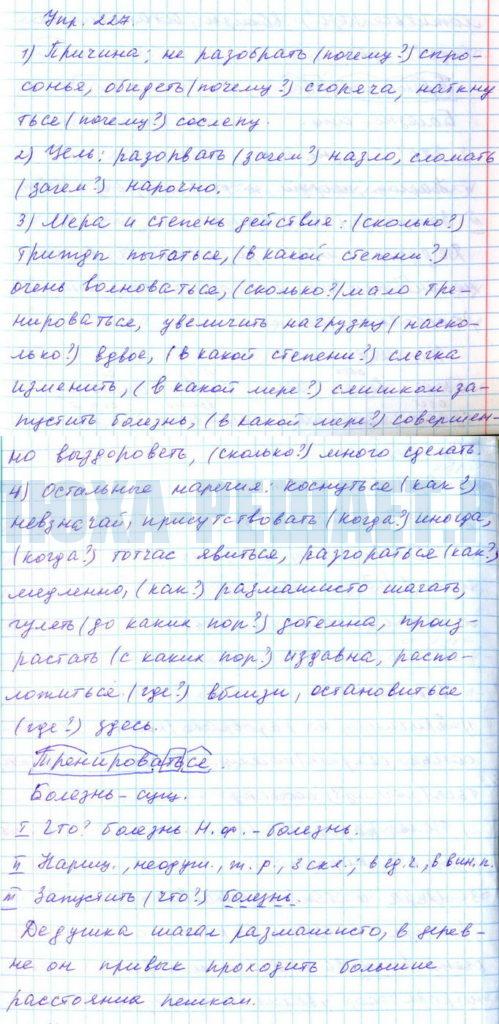 Упр. 227
1) Причина: не разобрать (почему?) спро-
сонья, обидеть (почему?) сгоряча, наткну
ться (почему?) сослепу.
2) Цель: разорвать (зачем?) назло, сломать
(зачем?) нарочно.
3) Мера и степень действия: (сколько?)
трижды пытаться, (в какой степени?)
очень волноваться, (сколько?) мало тре-
нироваться, увеличить нагрузку (наско-
лько?) вдвое, (в какой степени?) слегка
изменить, (в какой мере?) слишком за-
пустить болезнь, (в какой мере?) совершен-
но выздороветь, (сколько?) много сделать.
4) Остальные наречия: коснуться (как?)
невзначай, присутствовать (когда?) иногда,
(когда?) тотчас явиться, разгораться (как?)
медленно, (как?) размашисто шагать,
гулять (до каких пор?) дотемна, произ-
растать (с каких пор?) издавна, распо-
ложиться (где?) вблизи, остановиться
(где?) здесь.
Тренироваться.
Болезнь - сущ.
I Что? болезнь Н.ф. - болезнь.
II Нариц., неодуш., ж.р., 3 скл.; в ед.ч., в вин.п.
III Запустить (что?) болезнь.
Дедушка шагал размашисто, в дерев-
не он привык проходить большие
расстояния пешком.